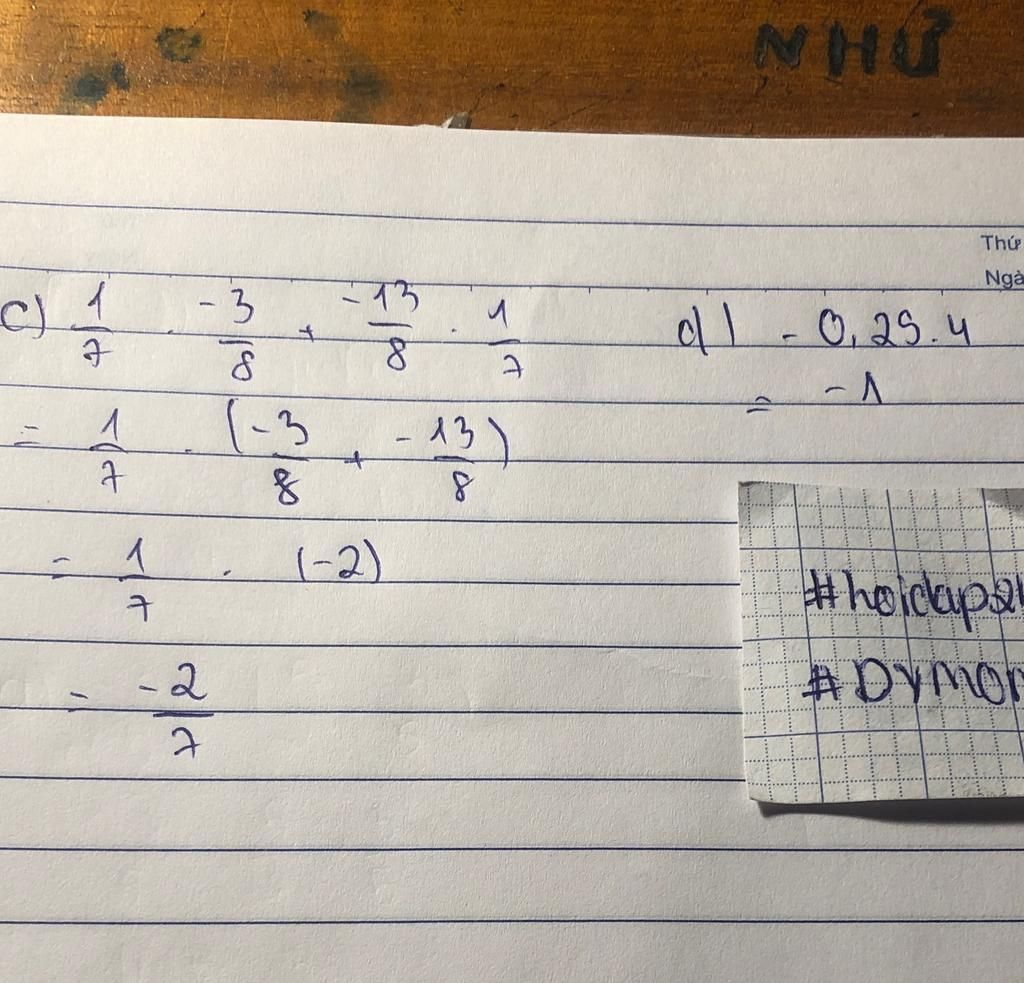 NHƯ
Thứ
Ngà
c) 1/7 . -3/8 + -13/8 . 1/7
= 1/7 . (-3/8 + -13/8)
= 1/7 . (-2)
= -2/7
d) - 0,25.4
= -1
#hoidap2
#DYMO